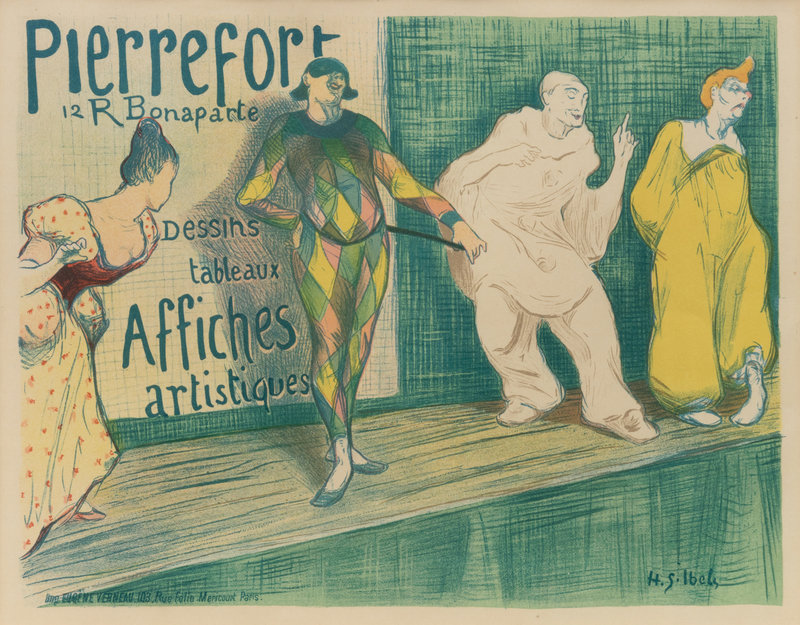 Pierrefort
12 R Bonaparte
Dessins
tableaux
Affiches
artistiques
H. G. Ibels
Imp. EUGÈNE VERNEAU, 103, Rue Folie Mericourt Paris.